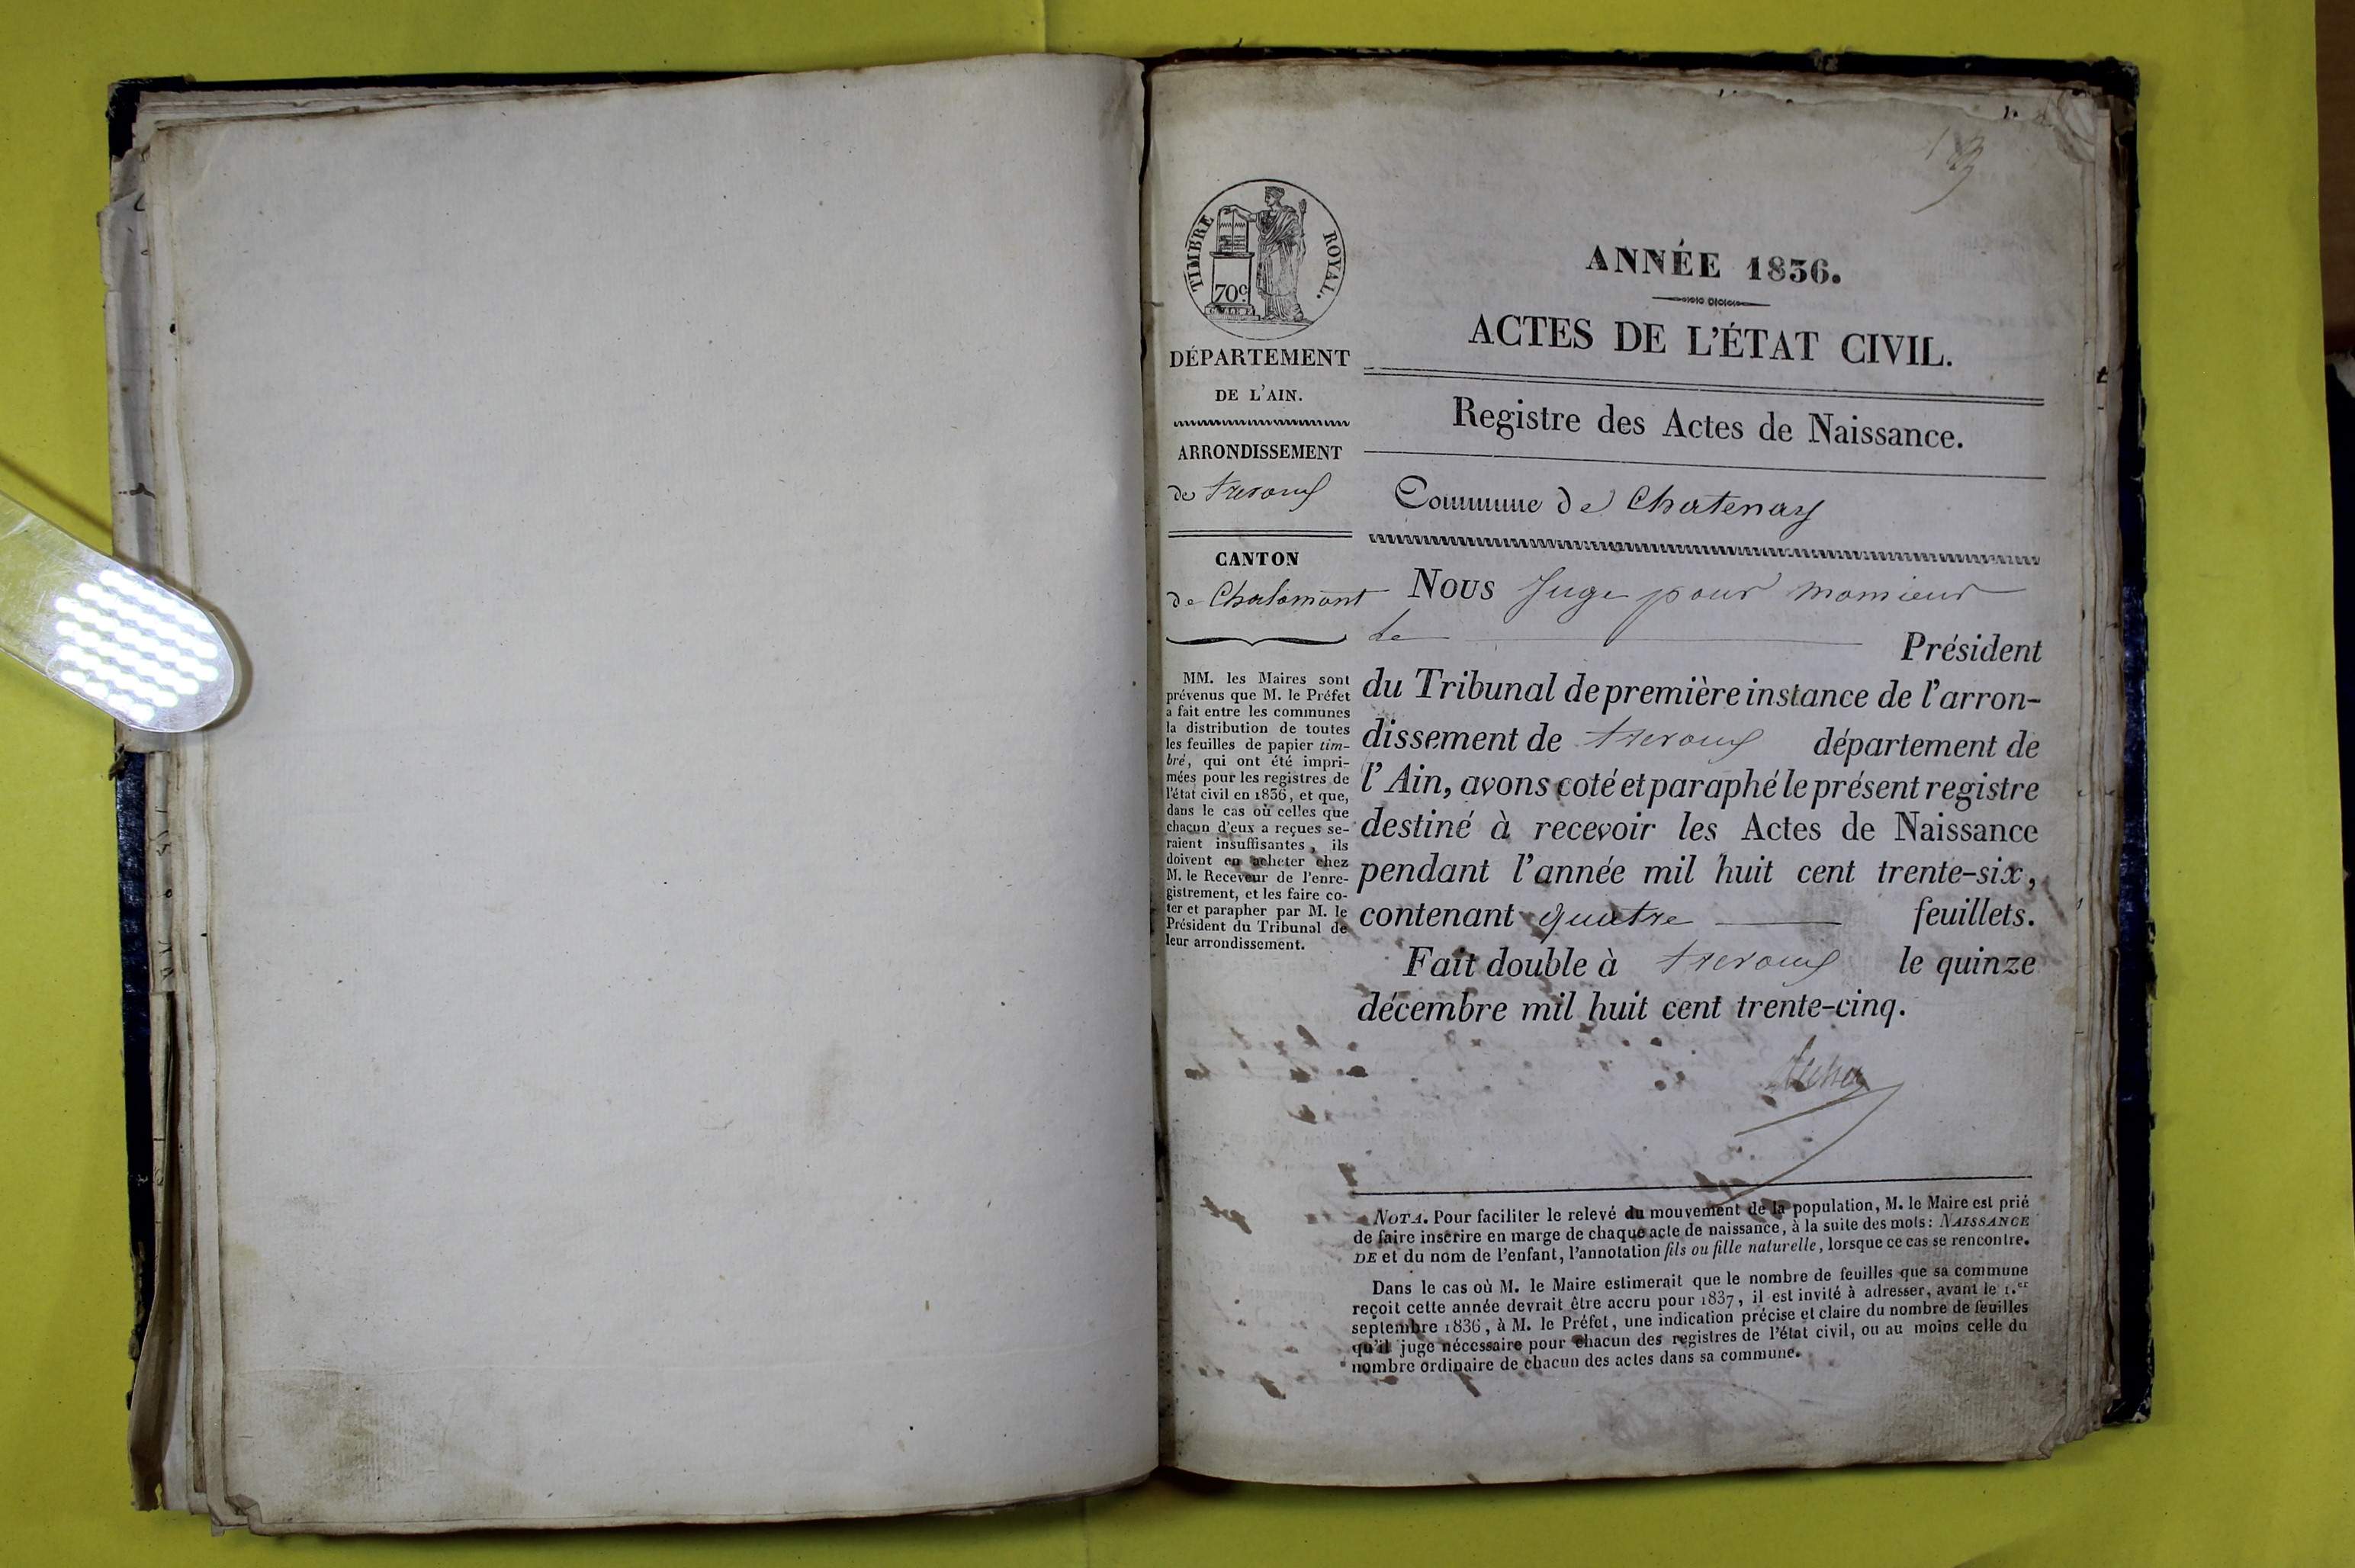 TIMBRE ROYAL.
70c.
DÉPARTEMENT
DE L'AIN.
ARRONDISSEMENT
de Trevoux
CANTON
de Chalamont
MM. les Maires sont
prévenus que M. le Préfet
a fait entre les communes
la distribution de toutes
les feuilles de papier tim-
bré, qui ont été impri-
mées pour les registres de
l'état civil en 1836, et que,
dans le cas où celles que
chacun d'eux a reçues se-
raient insuffisantes, ils
doivent en acheter chez
M. le Receveur de l'enre-
gistrement, et les faire co-
ter et parapher par M. le
Président du Tribunal de
leur arrondissement.
ANNÉE 1836.
ACTES DE L'ÉTAT CIVIL.
Registre des Actes de Naissance.
Commune de Chatenay
Nous Juge pour monsieur
le Président
du Tribunal de première instance de l'arron-
dissement de trevoux département de
l'Ain, avons coté et paraphé le présent registre
destiné à recevoir les Actes de Naissance
pendant l'année mil huit cent trente-six,
contenant quatre feuillets.
Fait double à trevoux le quinze
décembre mil huit cent trente-cinq.
NOTA. Pour faciliter le relevé du mouvement de la population, M. le Maire est prié
de faire inscrire en marge de chaque acte de naissance, à la suite des mots: NAISSANCE
DE et du nom de l'enfant, l'annotation fils ou fille naturelle, lorsque ce cas se rencontre.
Dans le cas où M. le Maire estimerait que le nombre de feuilles que sa commune
reçoit cette année devrait être accru pour 1837, il est invité à adresser, avant le 1.er
septembre 1836, à M. le Préfet, une indication précise et claire du nombre de feuilles
qu'il juge nécessaire pour chacun des registres de l'état civil, ou au moins celle du
nombre ordinaire de chacun des actes dans sa commune.